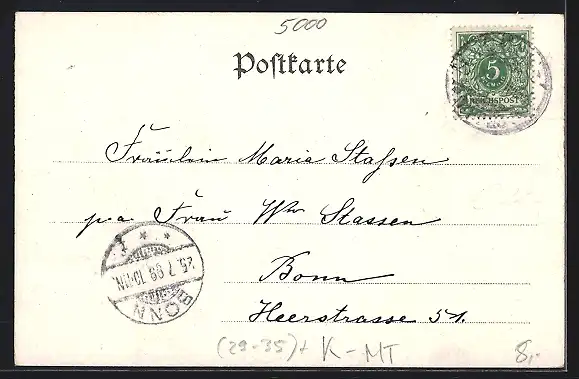 5000
Postkarte
5
REICHSPOST
Fräulein Marie Stassen
p.a. Frau Wwe Stassen
Bonn
Heerstrasse 51.
BONN
25.7.99.10-11N.
(29-35)+ K-MT
8,-